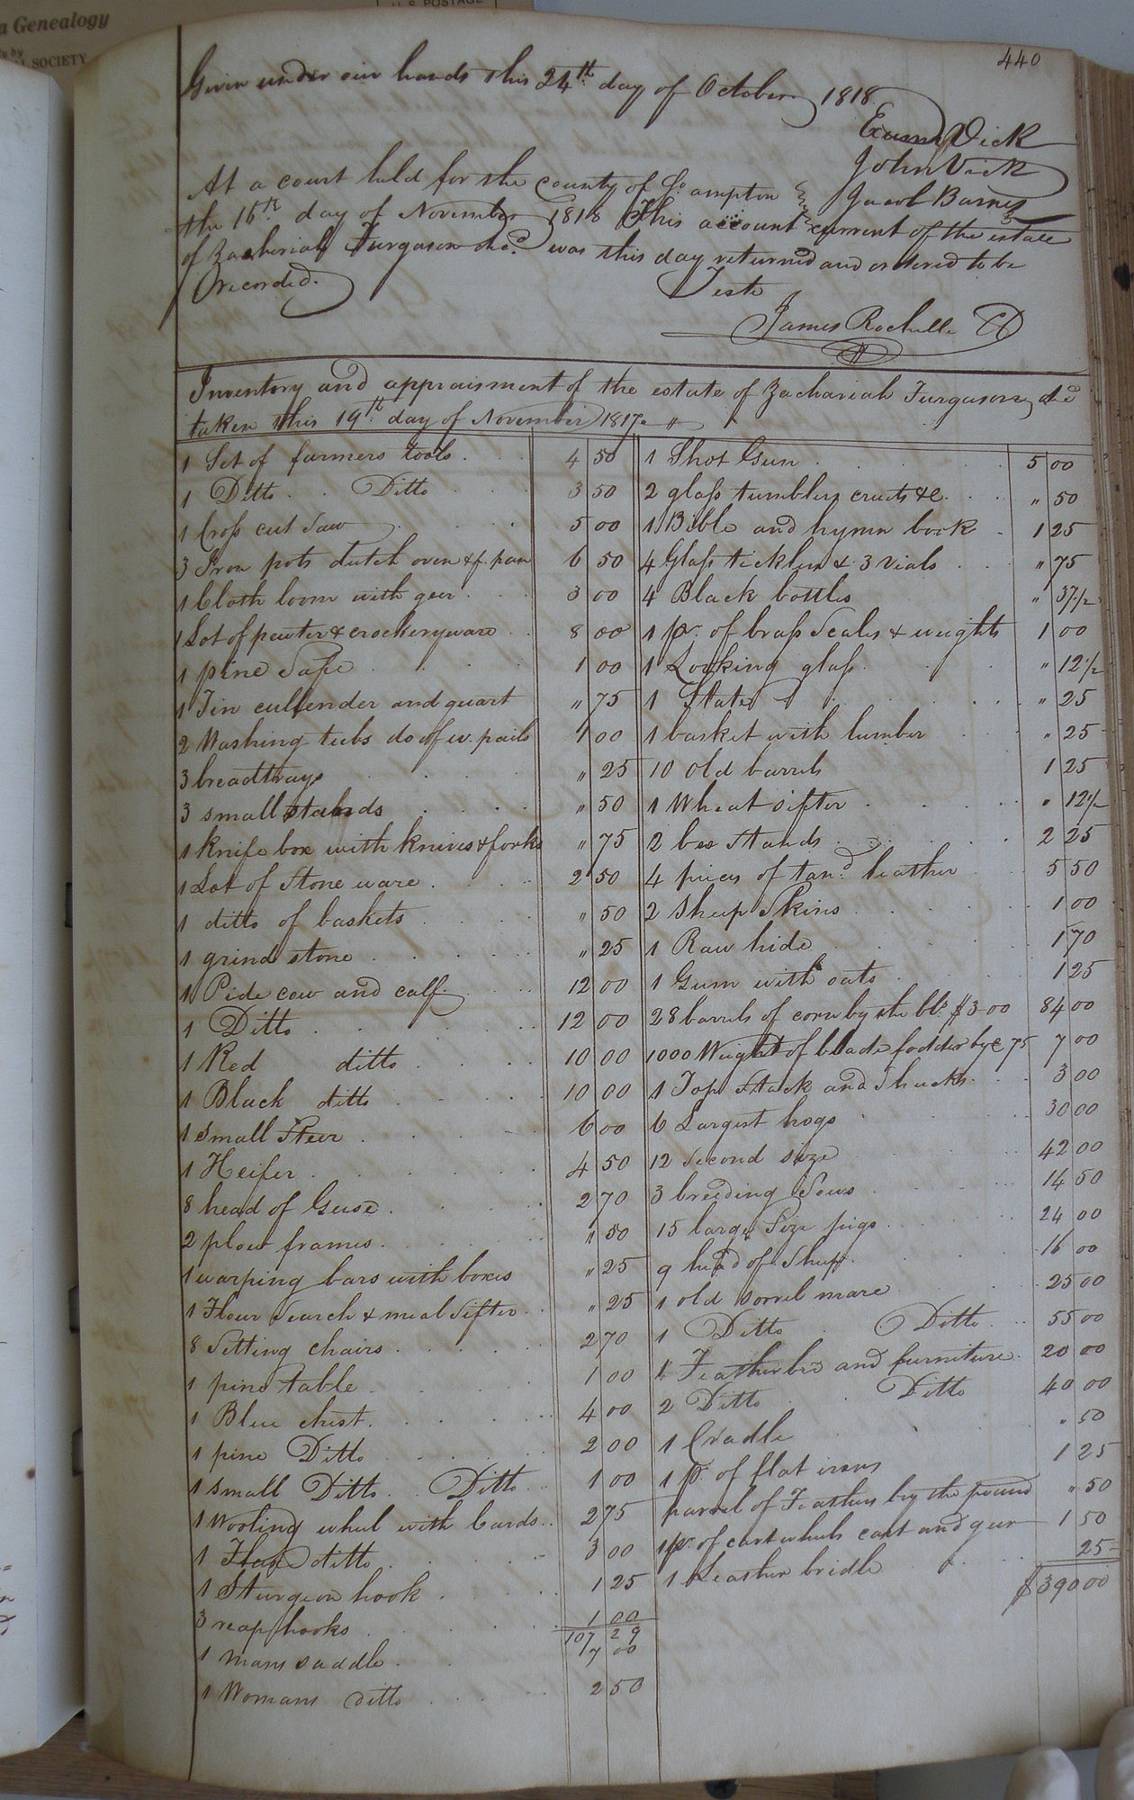 a Genealogy
SOCIETY
U.S. POSTAGE
440
Given under our hands this 24th day of October 1818
Vick
John Vick
Jacob Barnes
At a court held for the county of So ampton
the 16th day of November 1818 This account current of the estate
of Zacheriah Furgason decd was this day returned and ordered to be
recorded.
Teste
James Rochelle
Inventory and appraisment of the estate of Zachariah Furgason decd
taken this 19th day of November 1817.
1 Set of farmers tools 4 50
1 Ditto Ditto 3 50
1 Cross cut Saw 5 00
3 Iron pots dutch oven & f. pan 6 50
1 Cloth loom with geer 3 00
1 Lot of pewter & crockeryware 8 00
1 pine Safe 1 00
1 Tin cullender and quart " 75
2 Washing tubs do of w. pails 1 00
3 breadtrays " 25
3 small " 50
1 knife box with knives & forks " 75
1 Lot of Stone ware 2 50
1 ditto of baskets " 50
1 grind stone " 25
1 Pide cow and calf 12 00
1 Ditto 12 00
1 Red ditto 10 00
1 Black ditto 10 00
1 Small Steer 6 00
1 Heifer 4 50
8 head of Geese 2 70
2 plow frames " 50
1 warping bars with boxes " 25
1 Flour Search & meal Sifter " 25
8 Sitting chairs 2 70
1 pine table 1 00
1 Blue chest 4 00
1 pine Ditto 2 00
1 small Ditto Ditto 1 00
1 Wooling wheel with Cards 2 75
1 Flax ditto 3 00
1 Sturgeon hook 1 25
3 reap hooks 1 00
107 29
1 mans saddle 7 00
1 Womans ditto 2 50
1 Shot Gun 5 00
2 glass tumblers cruets &c " 50
1 Bible and hymn book 1 25
4 Glass ticklers & 3 vials " 75
4 Black bottles " 37 1/2
1 pr. of brass Scales & weights 1 00
1 Looking glass " 12 1/2
1 Slate " 25
1 basket with lumber " 25
10 old barrels 1 25
1 Wheat sifter " 12 1/2
2 bee Stands 2 25
4 pieces of tand leather 5 50
2 Sheep Skins 1 00
1 Raw hide 1 70
1 Gum with oats 1 25
28 barrels of corn by the bbl $3 00 84 00
1000 Weight of blade fodder by c 75 7 00
1 Top Stack and Shucks 3 00
6 Largest hogs 30 00
12 Second size 42 00
3 breeding Sows 14 50
15 large Size pigs 24 00
9 head of Sheep 16 00
1 old sorrel mare 25 00
1 Ditto Ditto 55 00
1 Feather bed and furniture 20 00
2 Ditto Ditto 40 00
1 Cradle " 50
1 p. of flat irons 1 25
parcel of Feathers by the pound " 50
1 pr. of cart wheels cart and geer 1 50
1 Leather bridle 25
$390 00